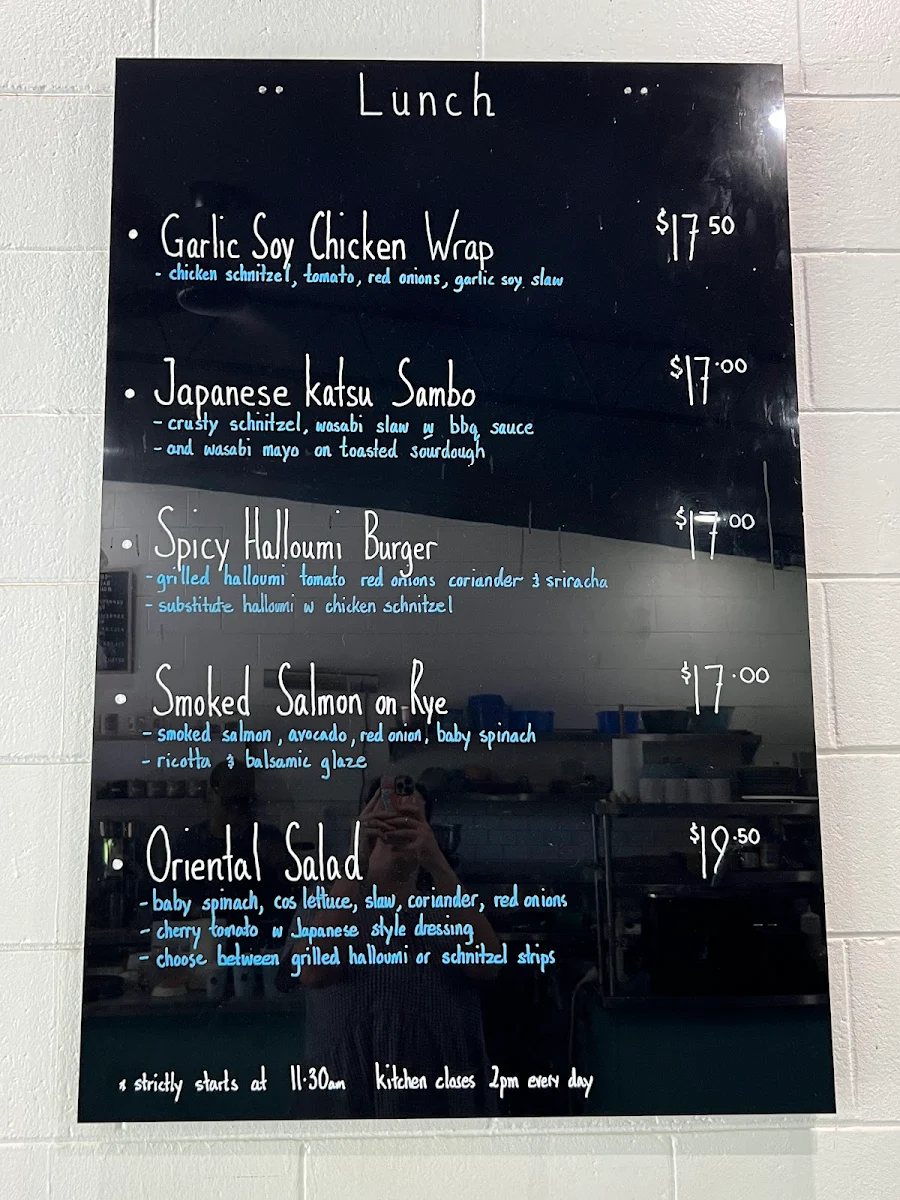 Lunch
• Garlic Soy Chicken Wrap $17 50
- chicken schnitzel, tomato, red onions, garlic soy slaw
• Japanese Katsu Sambo $17.00
- crusty schnitzel, wasabi slaw w bbq sauce
- and wasabi mayo on toasted sourdough
• Spicy Halloumi Burger $17 00
- grilled halloumi tomato red onions coriander & sriracha
- substitute halloumi w chicken schnitzel
• Smoked Salmon on Rye $17.00
- smoked salmon, avocado, red onion, baby spinach
- ricotta & balsamic glaze
• Oriental Salad $19.50
- baby spinach, cos lettuce, slaw, coriander, red onions
- cherry tomato w Japanese style dressing
- choose between grilled halloumi or schnitzel strips
* strictly starts at 11.30am kitchen closes 2pm every day